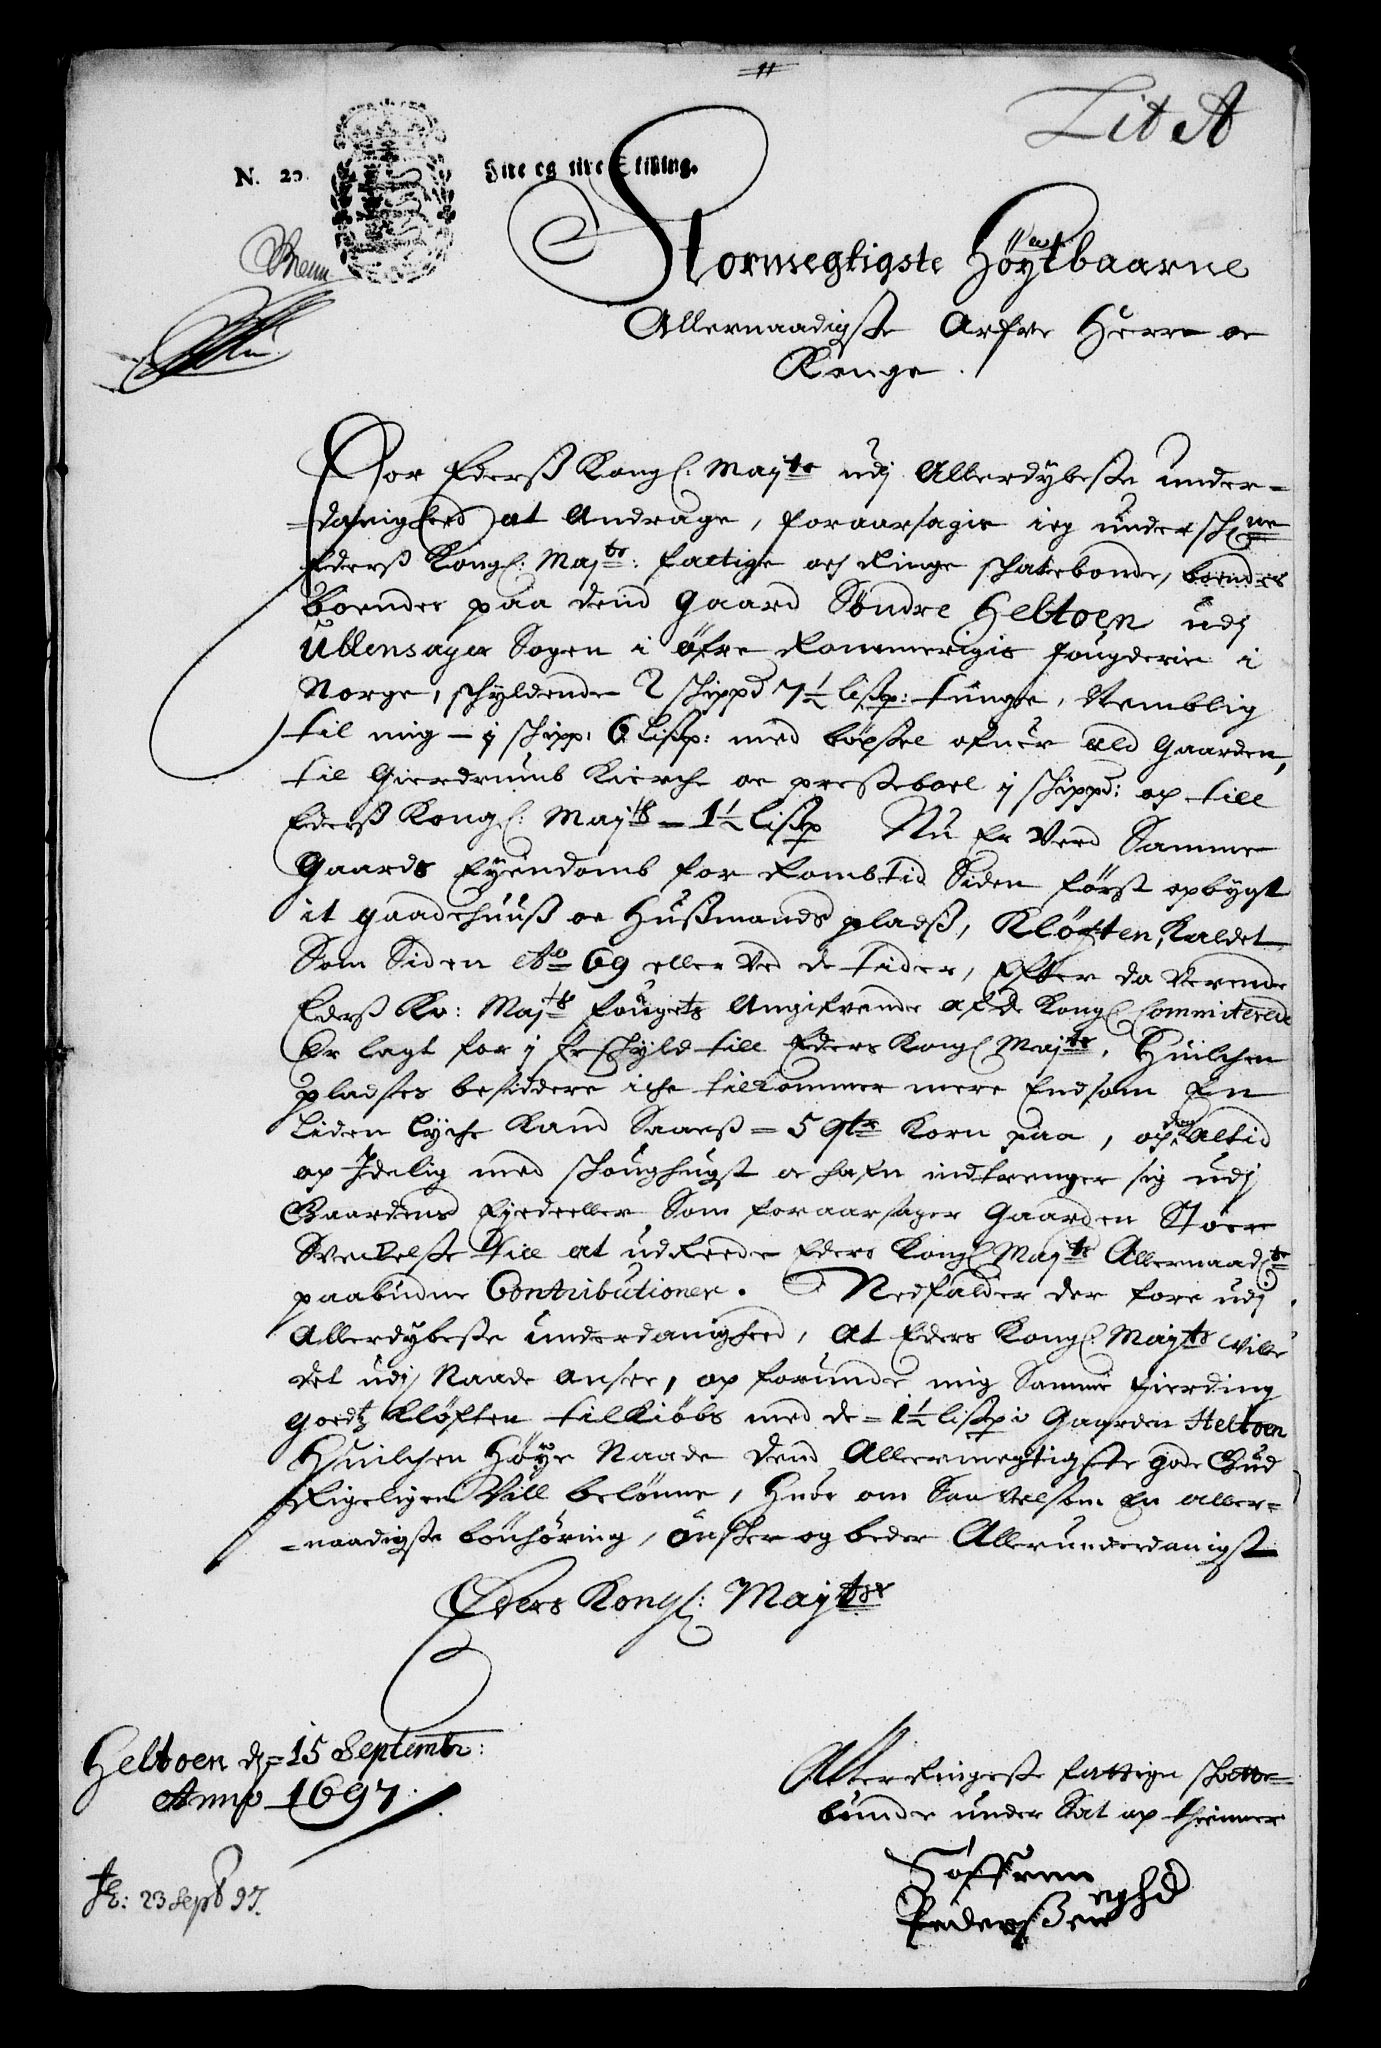 11
Lit A
N. 20. Fire og tive Skilling.
Stormegtigste Høÿtbaarne
Allernaadigste Arfve Herre oc
Konge.
For Ederß Kongl: Maÿts udj Allerdybeste under-
-danigheed at Andrage, foraarsagis ieg undersch:ne
Ederß Kongl: Maÿts: fattige och Ringe schatebonde,
boendes paa dend gaard Søndre Heltoen udj
Ullensager Sogen i øfre Rommerigis fougderie i
Norge, schyldende 2 schippd 7½ lißp: tunge, Nemblig
til mig - j schipp: 6 lißp: med bøxsel ofuer ald Gaarden,
til Gierdrumb Kirche oc presteboel j schippd: op till
Ederß Kongl: Maÿts - 1½ lißp Nu Er Ved Samme
Gaards Eÿendomb for Rombtid Siden først opbygt
it gaadehuuß oc Hußmands pladß, Kløften, Kaldet
Som Siden Ao 69 eller Ved de tider, Efter da Verende
Ederß Ko: Maÿts fougets Angifvende af de Kongl Committerede
Er lagt for j feschyld till Eders Kongl Maÿts, Huilchen
pladses besiddere iche tilkommer mere End som En
Liden lyche Kand Saaeß - 5 qtr Korn paa, og der Altid
op Idelig med schoughugst oc hafn indtrenger sig udj
Gaardens Eyedeeller, Som foraarsager Gaarden Stoer
Svekelse till at udreede Eders Kongl Maÿts Allernaadste
paabudne Contributioner. Nedfalder der fore udj
Allerdybeste underdanigheed, at Eders Kongl Maÿts Ville
det udj Naade Ansee, op forunde mig Samme fierding
goedtz Kløften til Kiøbs med de - 1½ lißp i Gaarden Heltoen
Huilchen Høÿe Naade dend Allermegtigste gode Gud
Rigeligen Vill belønne, Huor om Saa Velsom En aller-
-naadigste bønhøring, ønsker og beder Allerunderdanigst
Eders Kongl: Maÿts
Heltoen d: 15 Septembr:
Anno 1697.
Aller Ringeste fattige schatte-
bunde under Sat op thienner
Søffren
Pederßen eghd
23 Sept 97.